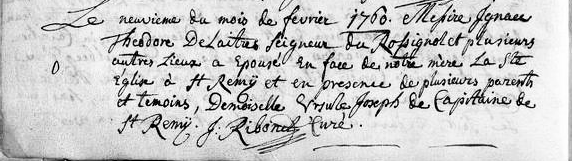 Le neuvieme du mois de fevrier 1760. Messire Jgnace
Theodore DeLaitres Seigneur du Rossignol et plusieurs
autres Lieux a Epousé En face de notre mere La Ste
Eglise a St Remÿ et en presence de plusieurs parents
et temoins, Demoiselle Ursule Joseph de Capitaine de
St Remÿ. J: Curé.